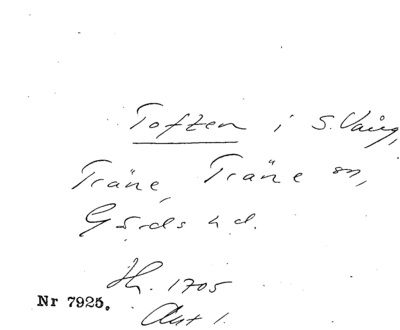 Toften i S. Vång,
Träne, Träne sn,
Gärds hd.
Hh. 1705
Akt 1.
Nr 7925.